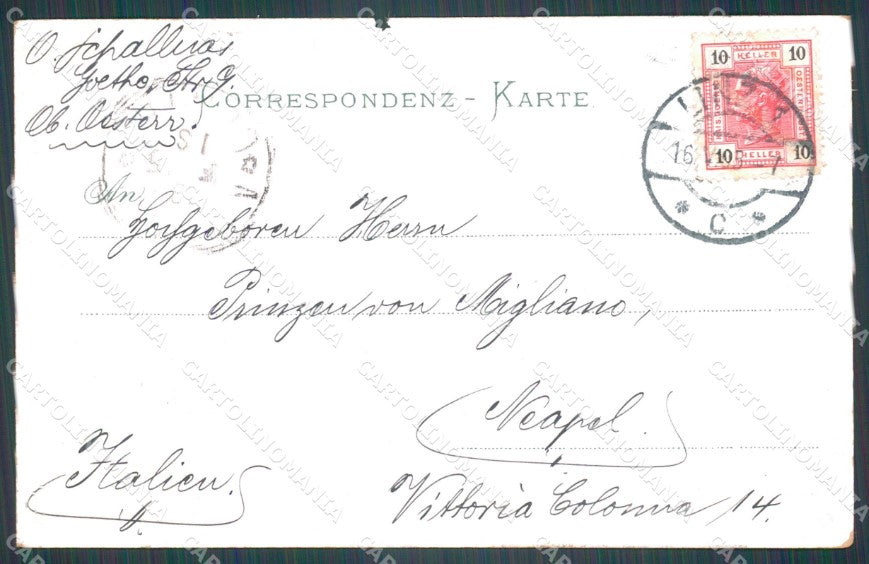 O. Schallura,
Goethe, Str 9.
Ob. Oesterr.
CORRESPONDENZ - KARTE.
10 KELLER 10
10 HELLER 10
LINZ 1
16
* C *
An
Hochgeboren Herrn
Prinzen von Migliano,
Neapel.
Italien.
Vittoria Colonna 14.
CARTOLINOMANIA